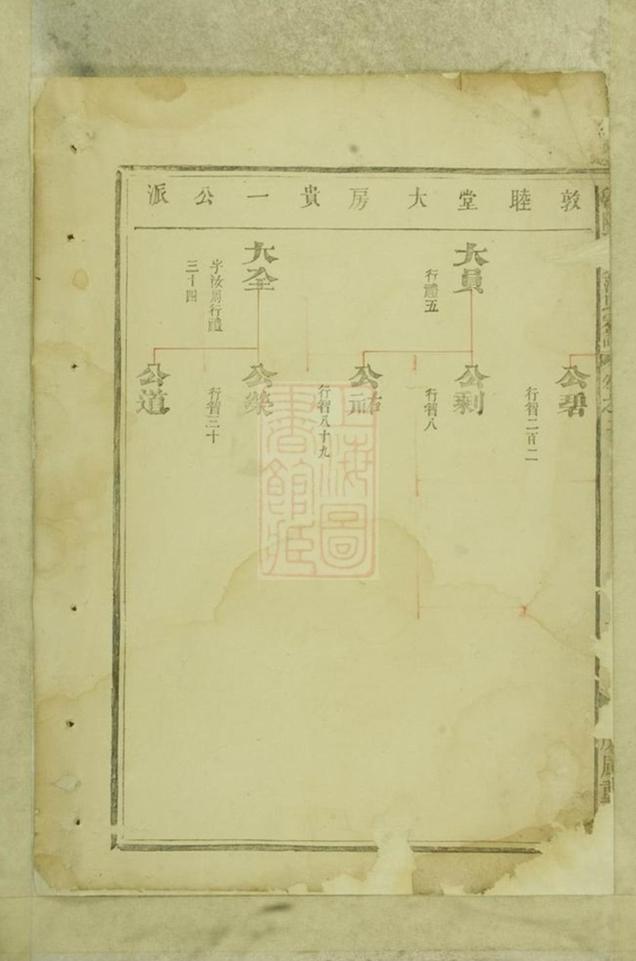 敦睦堂大房貴一公派
大員
行禮五
大全
字汝周行禮
三十四
公碧
行智二百二
公剩
行智八
公祐
行智八十九
公榮
行智三十
公道
上海圖
書館藏